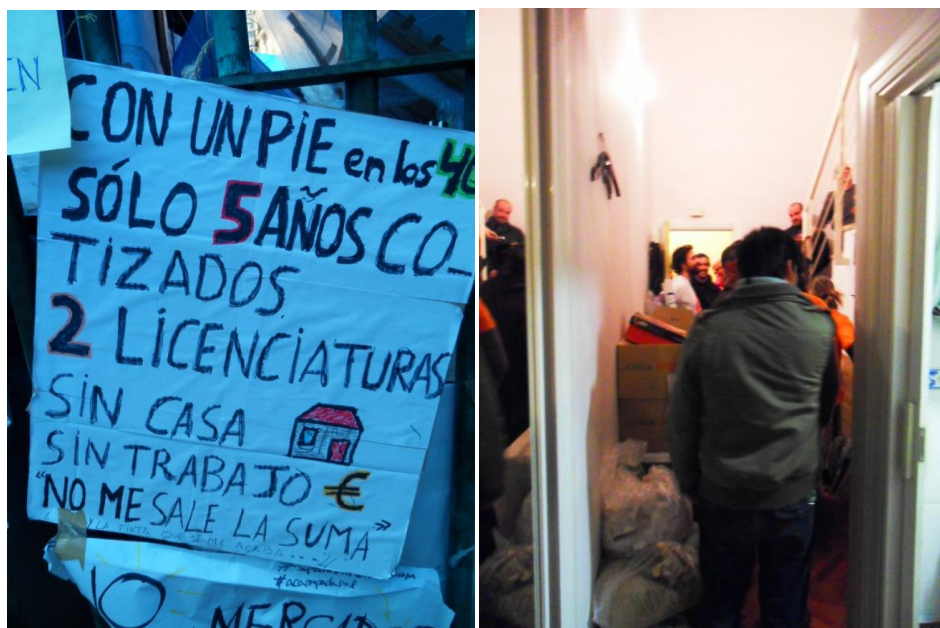 IN
CON UN PIE en los 40
SÓLO 5 AÑOS CO-
TIZADOS.
2 LICENCIATURAS
SIN CASA
SIN TRABAJO €
"NO ME SALE LA SUMA"
Y LA TINTA QUE SE ME ACABA...